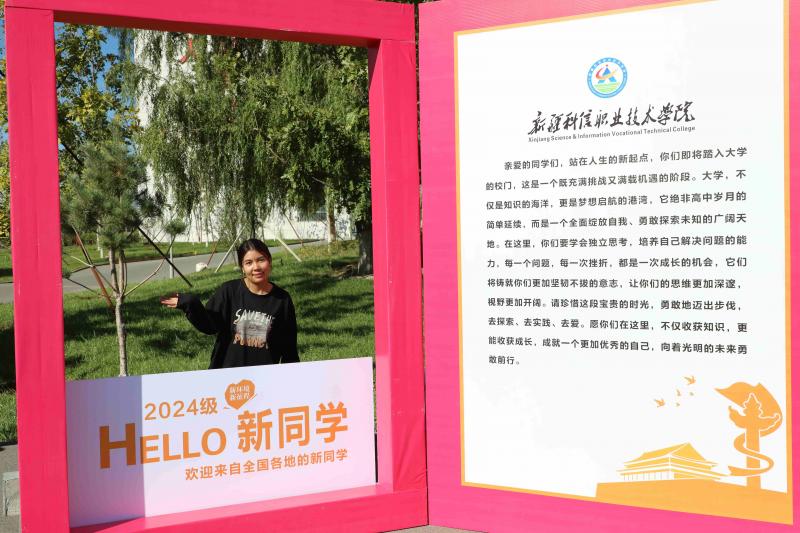 2024级
新环境
新征程
HELLO 新同学
欢迎来自全国各地的新同学
SAVE THE
新疆科信职业技术学院
Xinjiang Science & Information Vocational Technical College
亲爱的同学们，站在人生的新起点，你们即将踏入大学
的校门，这是一个既充满挑战又满载机遇的阶段。大学，不
仅是知识的海洋，更是梦想启航的港湾，它绝非高中岁月的
简单延续，而是一个全面绽放自我、勇敢探索未知的广阔天
地。在这里，你们要学会独立思考，培养自己解决问题的能
力，每一个问题，每一次挫折，都是一次成长的机会，它们
将铸就你们更加坚韧不拔的意志，让你们的思维更加深邃，
视野更加开阔。请珍惜这段宝贵的时光，勇敢地迈出步伐，
去探索、去实践、去爱。愿你们在这里，不仅收获知识，更
能收获成长，成就一个更加优秀的自己，向着光明的未来勇
敢前行。